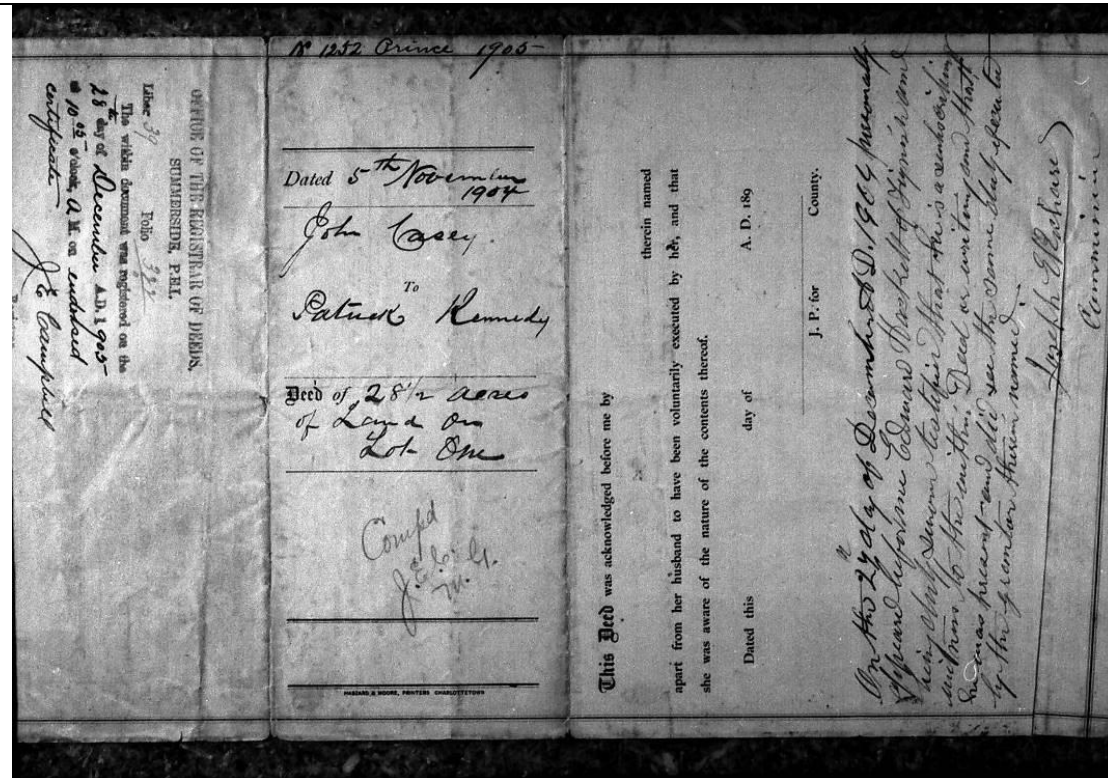 OFFICE OF THE REGISTRAR OF DEEDS,
SUMMERSIDE, P.E.I.
Liber 39 Folio 382
The within document was registered on the
28th day of December A.D. 1905
at 10 05 o'clock, A M. on endorsed
certificate
J. E. Campbell
No 1252 Prince 1905
Dated 5th November
1904
John Casey
To
Patrick Kennedy
Deed of 28 1/2 acres
of Land on
Lot One
Comp'd
J.E.C.
HASZARD & MOORE, PRINTERS CHARLOTTETOWN
This Deed was acknowledged before me by
therein named
apart from her husband to have been voluntarily executed by her, and that
she was aware of the nature of the contents thereof.
Dated this day of A. D. 189
J. P. for County.
On the 27th day of December A.D. 1904 personally
appeared before me Edward Hackett of Tignish and
being duly sworn testified that he is a subscribing
witness to the within Deed or writing and that
he was present and did see the same duly executed
by the grantor therein named.
Joseph
Commissioner